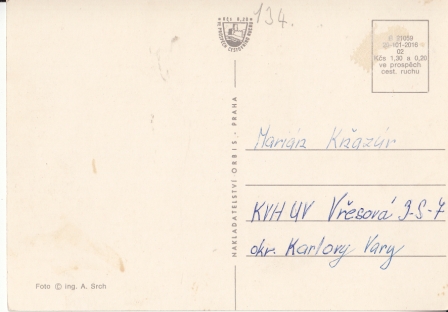 134.
Kčs 0,20
21059
101-2016
02
Kčs 1,30 a 0,20
ve prospěch
cest. ruchu
NAKLADATELSTVÍ ORBIS - PRAHA
Marián
KVH UV Vřesová 9-S-7
okr. Karlovy Vary
Foto © ing. A. Srch